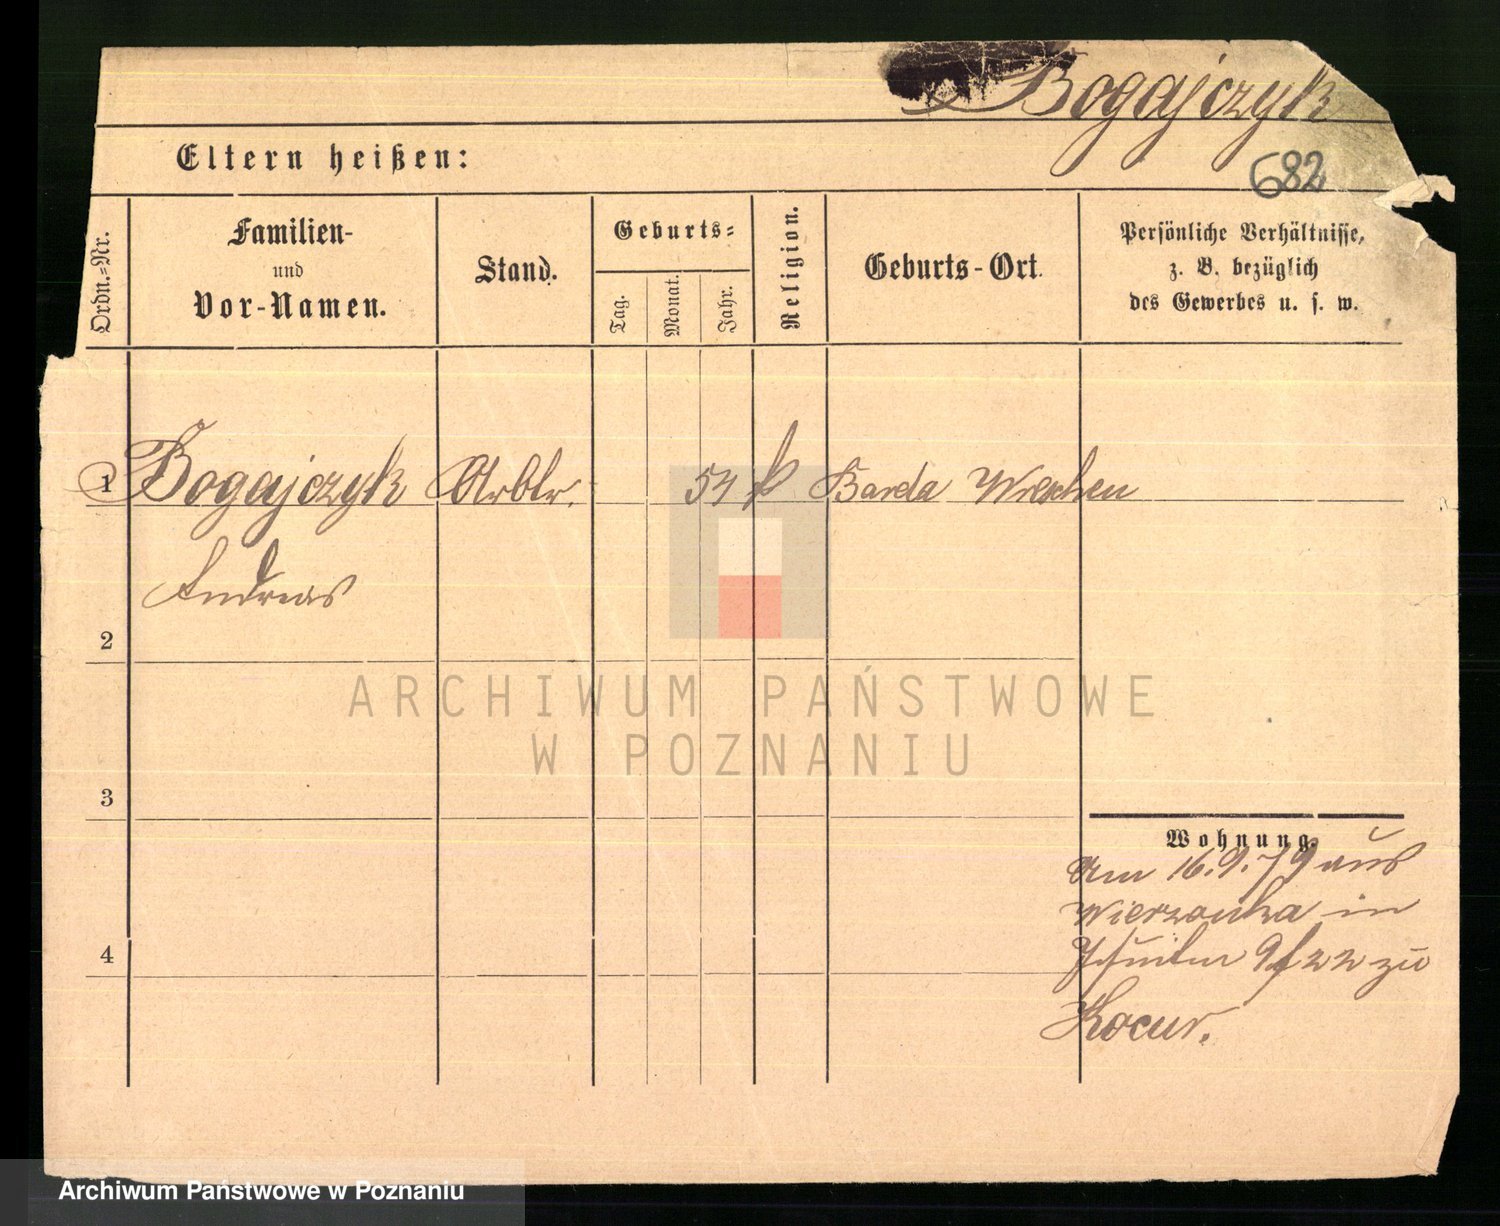 Bogajczyk
682
Eltern heißen:
Ordn.=Nr.
Familien-
und
Vor-Namen.
Stand.
Geburts=
Tag.
Monat.
Jahr.
Religion.
Geburts-Ort.
Persönliche Verhältnisse,
z. B. bezüglich
des Gewerbes u. s. w.
1 Bogajczyk Arbtr. 54 k Barda Wreschen
Andreas
2
3
4
Wohnung.
Am 16.9.79 aus
Wierzonka in
22 zu
Kocur.
ARCHIWUM PAŃSTWOWE
W POZNANIU
Archiwum Państwowe w Poznaniu